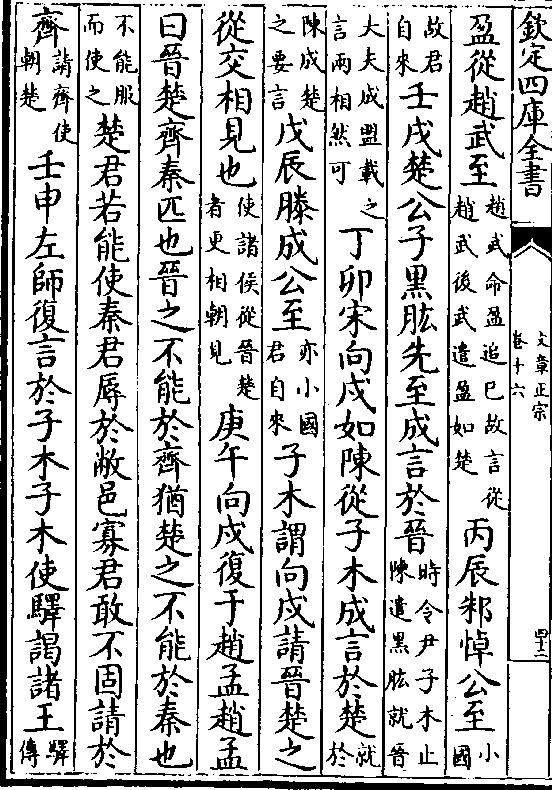 欽定四庫全書 文章正宗 卷十六 四十二
盈從趙武至趙武命盈追已故言從趙武後武遣盈如楚丙辰邾悼公至小國
故君自來壬戌楚公子黑肱先至成言於晉時令尹子木止陳遣黑肱就晉
大夫成盟載之言兩相然可丁卯宋向戌如陳從子木成言於楚就於
陳成楚之要言戊辰滕成公至亦小國君自來子木謂向戌請晉楚之
從交相見也使諸侯從晉楚者更相朝見庚午向戌復于趙孟趙孟
曰晉楚齊秦匹也晉之不能於齊猶楚之不能於秦也
不能服而使之楚君若能使秦君辱於敝邑寡君敢不固請於
齊請齊使朝楚壬申左師復言於子木子木使驛謁諸王驛傳